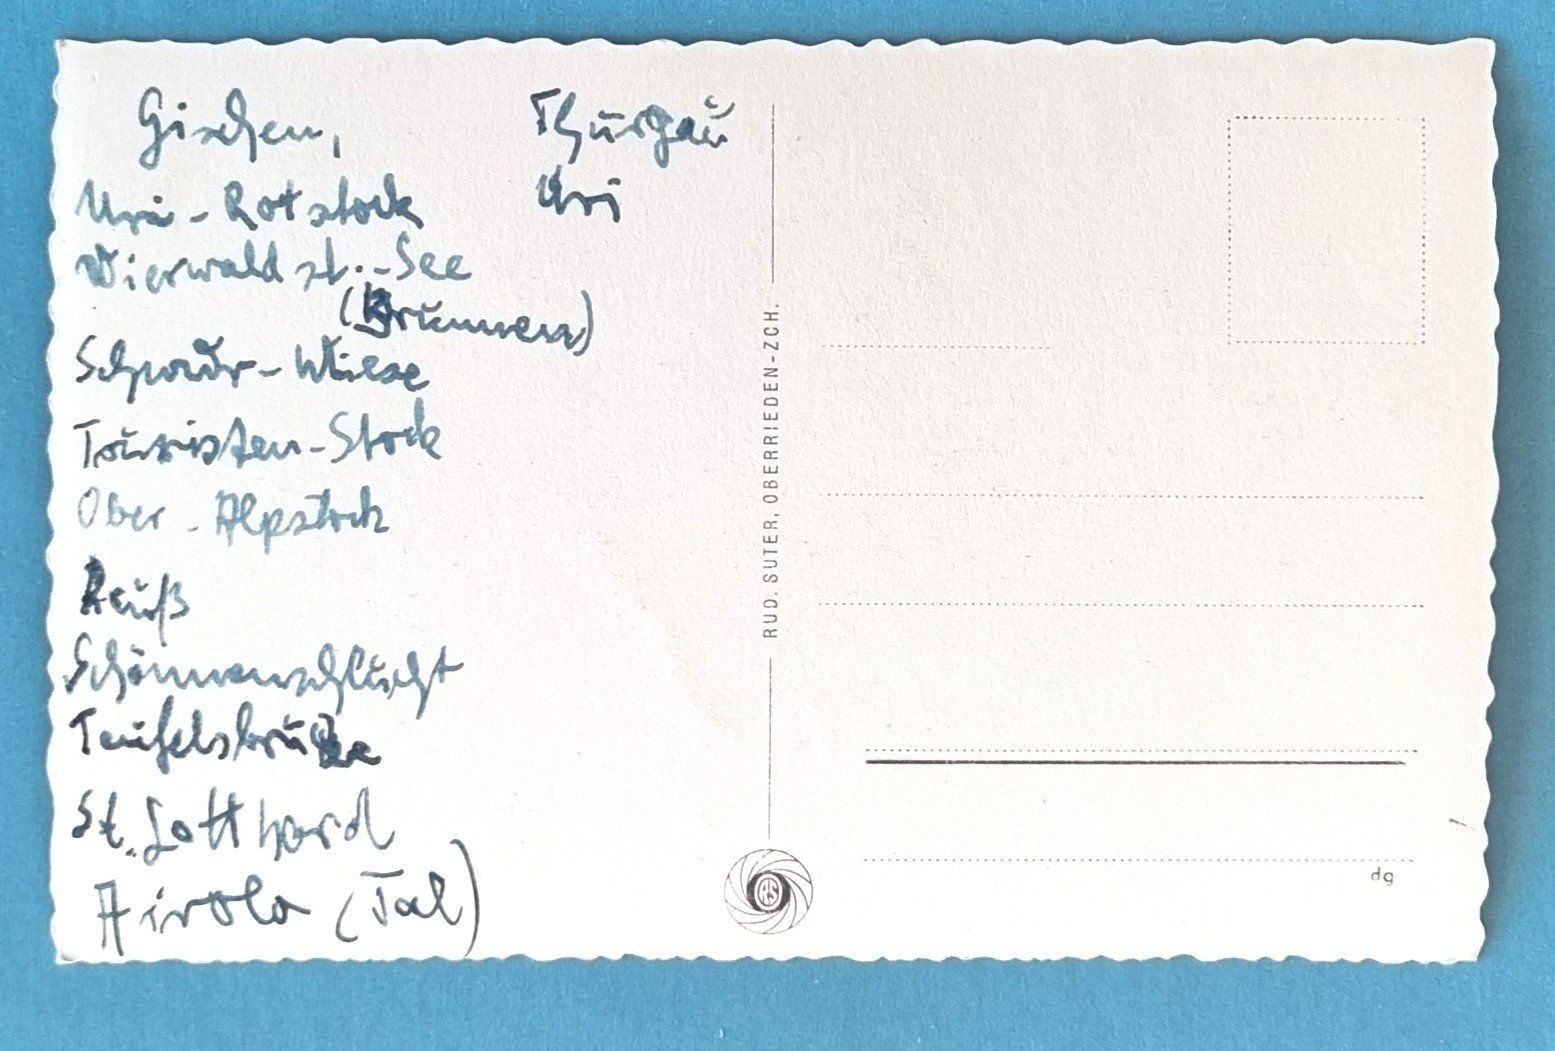 Gischen,
Uri-Rotstock
Vierwaldst.-See
(Brunnen)
Schwur-Wiese
Touristen-Stock
Ober-Alpstock
Reuß
Schönnenschlucht
Teufelsbrücke
St. Gotthard
Airolo (Tal)
Thurgau
Uri
RUD. SUTER, OBERRIEDEN-ZCH.
dg